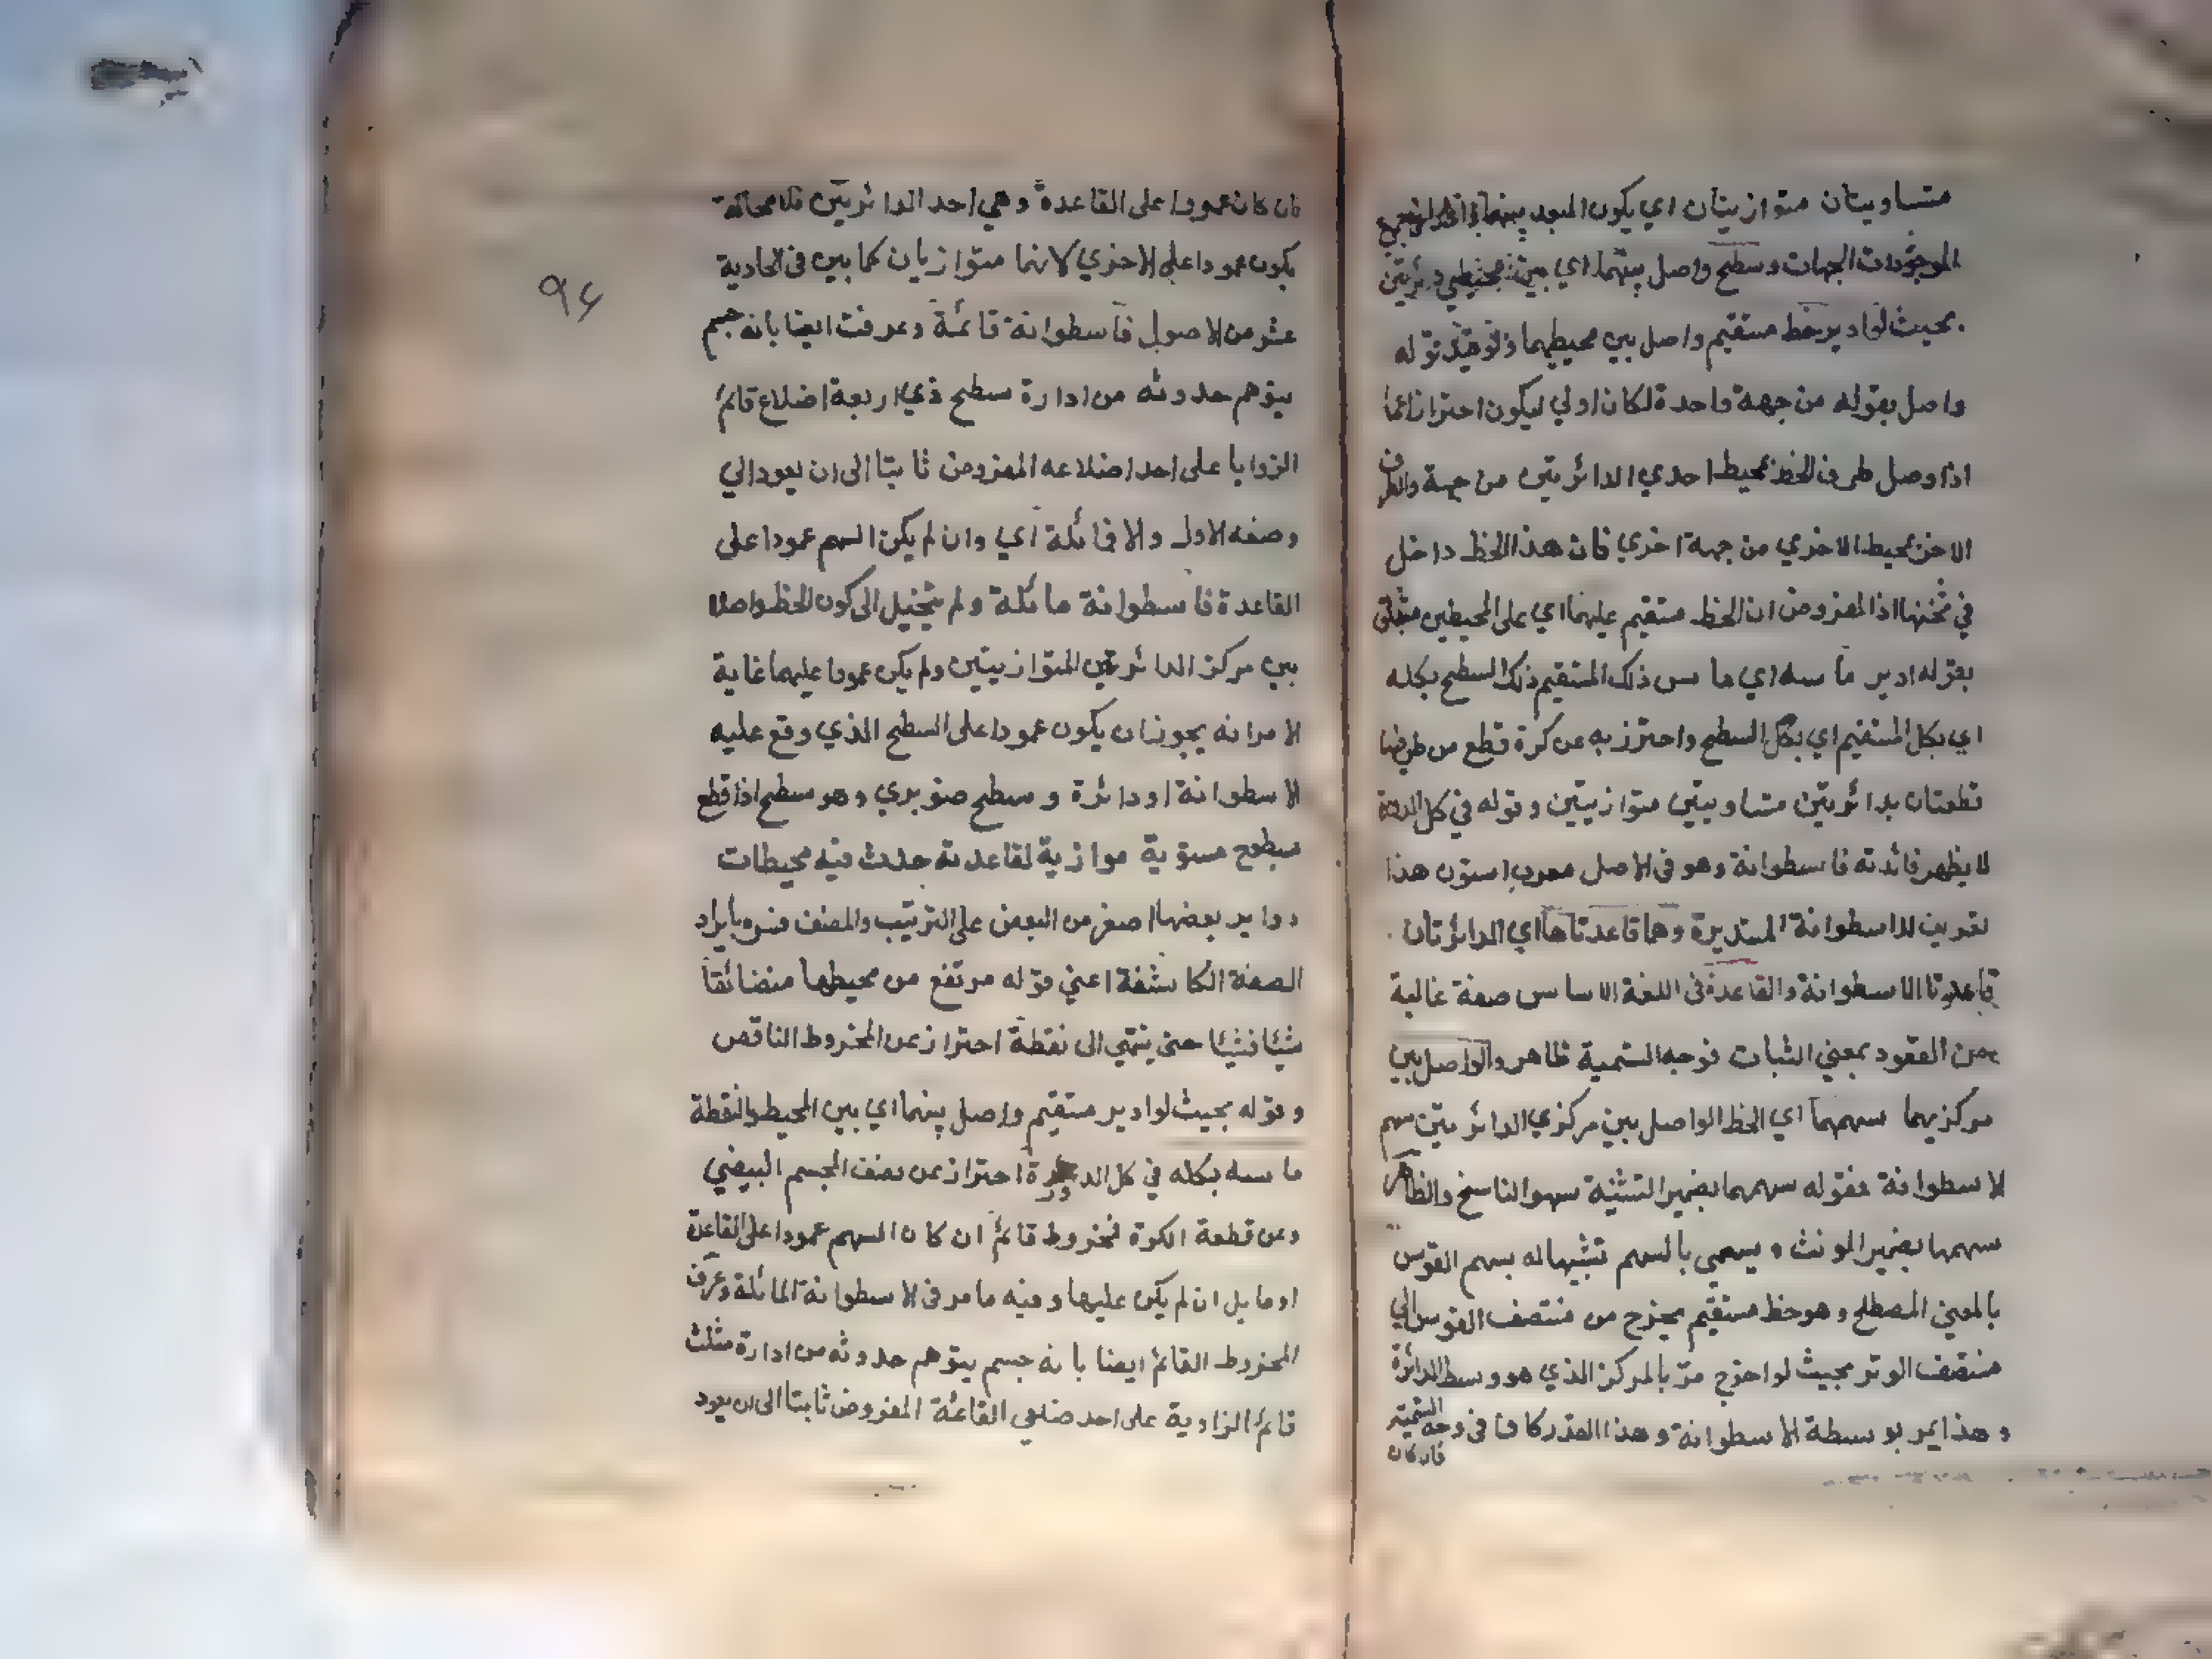 متساويتان متوازيتان اي يكون البعد بينهما في
الموجودات الجهات وسطح واصل بينهما اي بين محيطي دائرتين
بحيث لو ادير خط مستقيم واصل بين محيطيهما ولو قيد قوله
واصل بقوله من جهة واحدة لكان اولي ليكون احترازا عما
اذا وصل طرف الخط بمحيط احدي الدائرتين من جهة والطرف
الاخر بمحيط الاخري من جهة اخري فان هذا الخط داخل
في ثخنها اذ المفروض ان الخط مستقيم عليهما اي على المحيطين متعلق
بقوله ادير ماسه اي ماس ذلك المستقيم ذلك السطح بكله
اي بكل المستقيم اي بكل السطح واحترز به عن كرة قطع من طرفيها
قطعتان بدائرتين متساويتين متوازيتين وقوله في كل الدورة
لا يظهر فائدته فاسطوانة وهو في الاصل معرب استون هذا
تعريف للاسطوانة المستديرة وهما قاعدتاها اي الدائرتان
قاعدتا الاسطوانة والقاعدة في اللغة الاساس صفة غالبة
من القعود بمعني الثبات فوجه التسمية ظاهر والواصل بين
مركزيهما سهمهما اي الخط الواصل بين مركزي الدائرتين سهم
الاسطوانة فقوله سهمهما بضمير التثنية سهو الناسخ والظاهر
سهمها بضمير المونث ويسمي بالسهم تشبيها له بسهم القوس
بالمعني المصطلح وهو خط مستقيم يخرج من منتصف القوس الي
منتصف الوتر بحيث لو اخرج مر بالمركز الذي هو وسط الدائرة
وهذا يمر بوسطة الاسطوانة وهذا القدر كاف في وجه التسمية
فان كان
فان كان عمودا على القاعدة وهي احد الدائرتين فلا محالة
يكون عمودا علي الاخري لانهما متوازيان كما بين في الحادية
عشر من الاصول فاسطوانة قائمة وعرفت ايضا بانه جسم
يتوهم حدوثه من ادارة سطح ذي اربعة اضلاع قائم
الزوايا على احد اضلاعه المفروض ثابتا الى ان يعود الي
وضعه الاول والا فمائلة أي وان لم يكن السهم عمودا على
القاعدة فاسطوانة مائلة ولم يتخيل الى كون الخط واصلا
بين مركز الدائرتين المتوازيتين ولم يكن عمودا عليهما غاية
الامر انه يجوز ان يكون عمودا على السطح الذي وقع عليه
الاسطوانة او دائرة وسطح صنوبري وهو سطح اذا قطع
بسطوح مستوية موازية لقاعدته حدث فيه محيطات
دواير بعضها اصغر من البعض على الترتيب والمصنف فسره بايراد
الصفة الكاشفة اعني قوله مرتفع من محيطها متضائقا
شيئا فشيئا حتى ينتهي الى نقطة احتراز عن المخروط الناقص
وقوله بحيث لو ادير مستقيم واصل بينهما اي بين المحيط والنقطة
ماسه بكله في كل الدورة احتراز عن نصف المجسم البيضي
وعن قطعة الكرة فمخروط قائم ان كان السهم عمودا على القاعدة
او مايل ان لم يكن عليها وفيه ما مر في الاسطوانة المائلة وعرف
المخروط القائم ايضا بانه جسم يتوهم حدوثه من ادارة مثلث
قائم الزاوية على احد ضلعي القائمة المفروض ثابتا الى ان يعود
٩٤